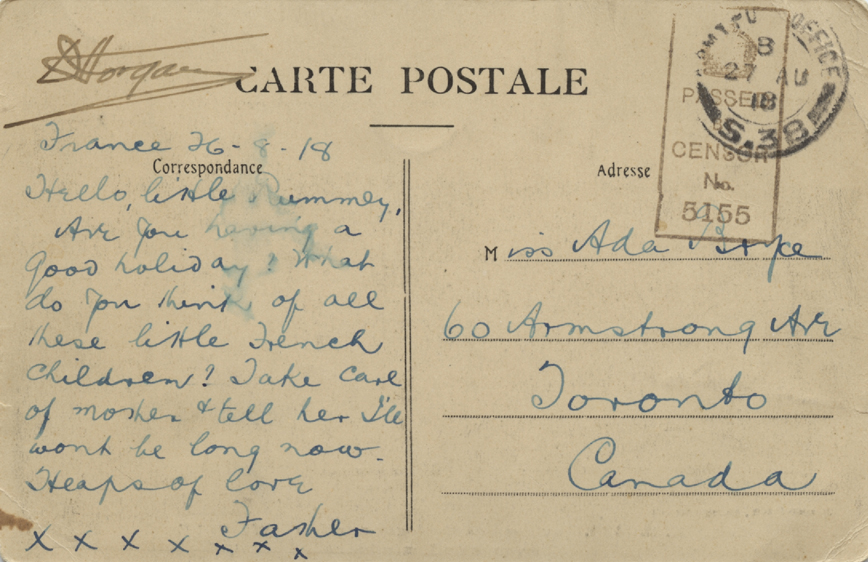 DHorgan
CARTE POSTALE
ARMY P OFFICE
B
27 AU
18
S.38
PASSED
CENSOR
No.
5155
France 26-8-18
Correspondance
Hello, little Rummey,
Are you having a
good holiday? What
do you think of all
these little French
children? Take care
of mother & tell her I'll
wont be long now.
Heaps of love
Father
x x x x x x x
Adresse
Miss Ada
60 Armstrong Ave
Toronto
Canada